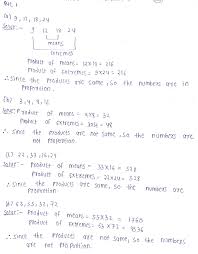 (a) 9, 12, 18, 24
9 12 18 24
means
extremes
Product of means = 12×18 = 216
Product of extremes = 9×24 = 216
∴ Since the products are same, so the numbers are in
Proportion.
Product of means =
Product of extremes =
∴ Since the products are not same, so the numbers
are not proportion.
Product of means = 33×16 = 528
Product of extremes = 22×24 = 528
∴ Since the products are same, so the numbers are
in proportion
Product of means = 55×32 = 1760
Product of extremes =
∴ Since the products are not same, so the numbers
are not proportion.